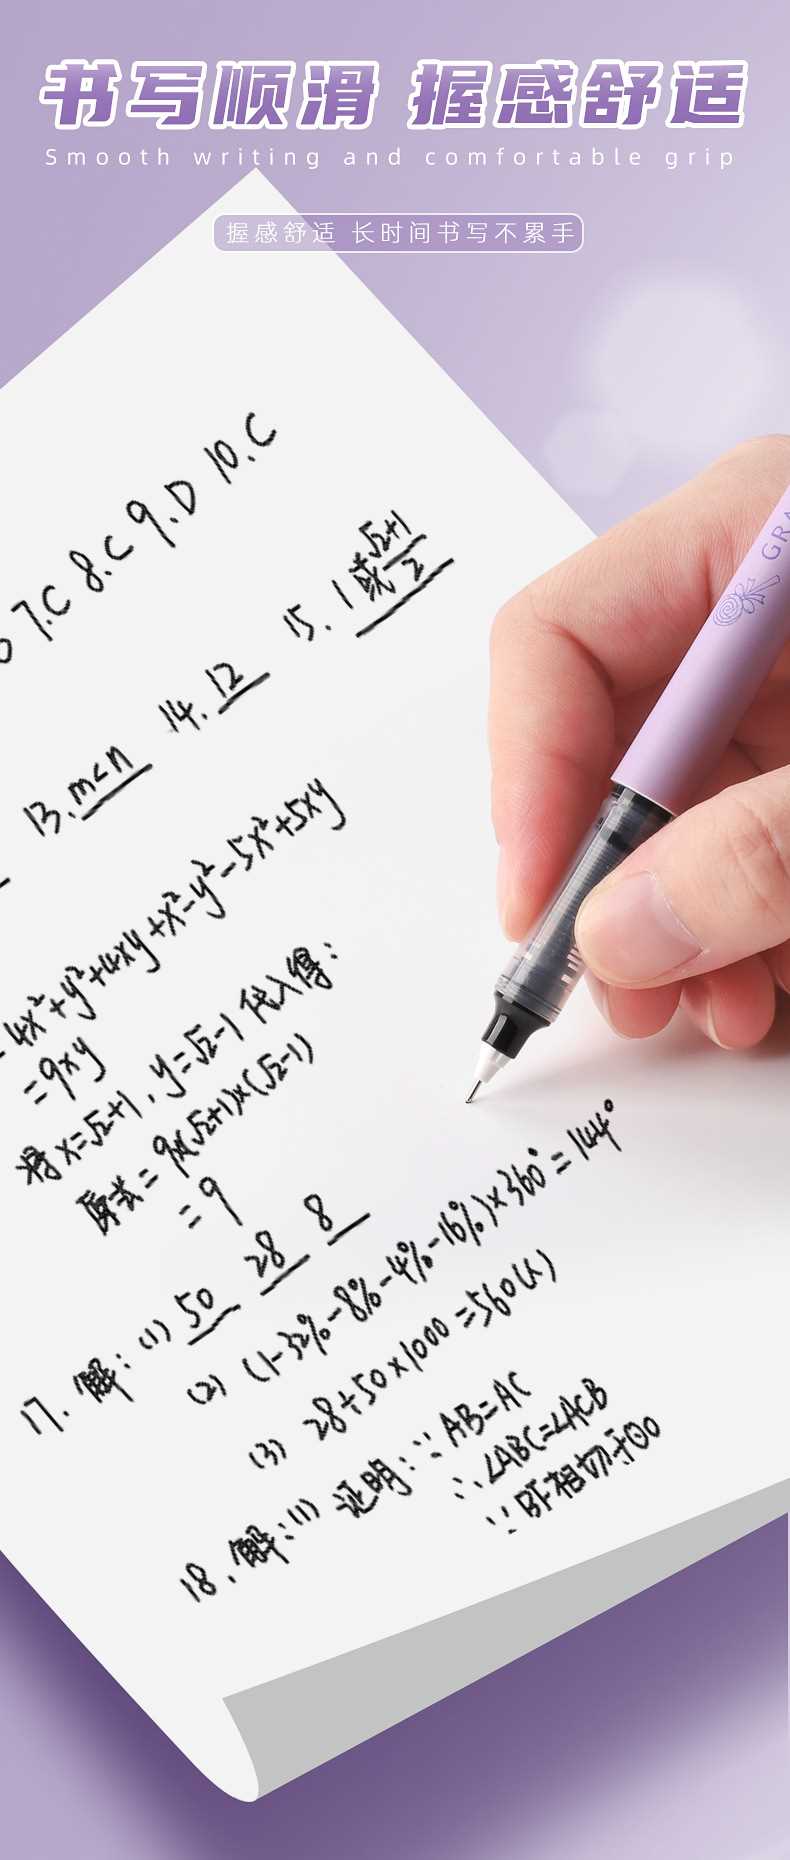 书写顺滑 握感舒适
Smooth writing and comfortable grip
握感舒适 长时间书写不累手
7.C 8.C 9.D 10.C
13. m<n 14. 12 15. 1或(√2+1)/2
GRA
4x²+y²+4xy+x²-y²-5x²+5xy
=9xy
将x=√2+1, y=√2-1代入得:
原式=9×(√2+1)×(√2-1)
=9
17. 解:(1) 50 28 8
(2) (1-32%-8%-4%-16%)×360°=144°
(3) 28÷50×1000=560(人)
18. 解:(1) 证明:∵AB=AC
∴∠ABC=∠ACB
∵BF相切于⊙O